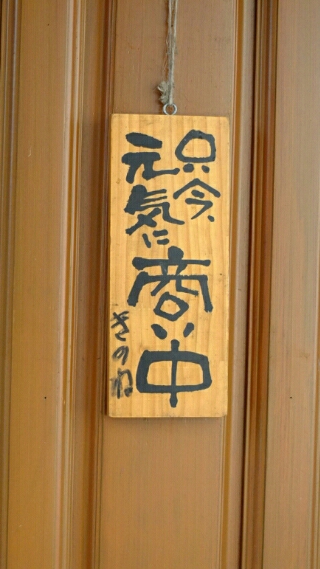 只今、
元気に
商い中
きのね